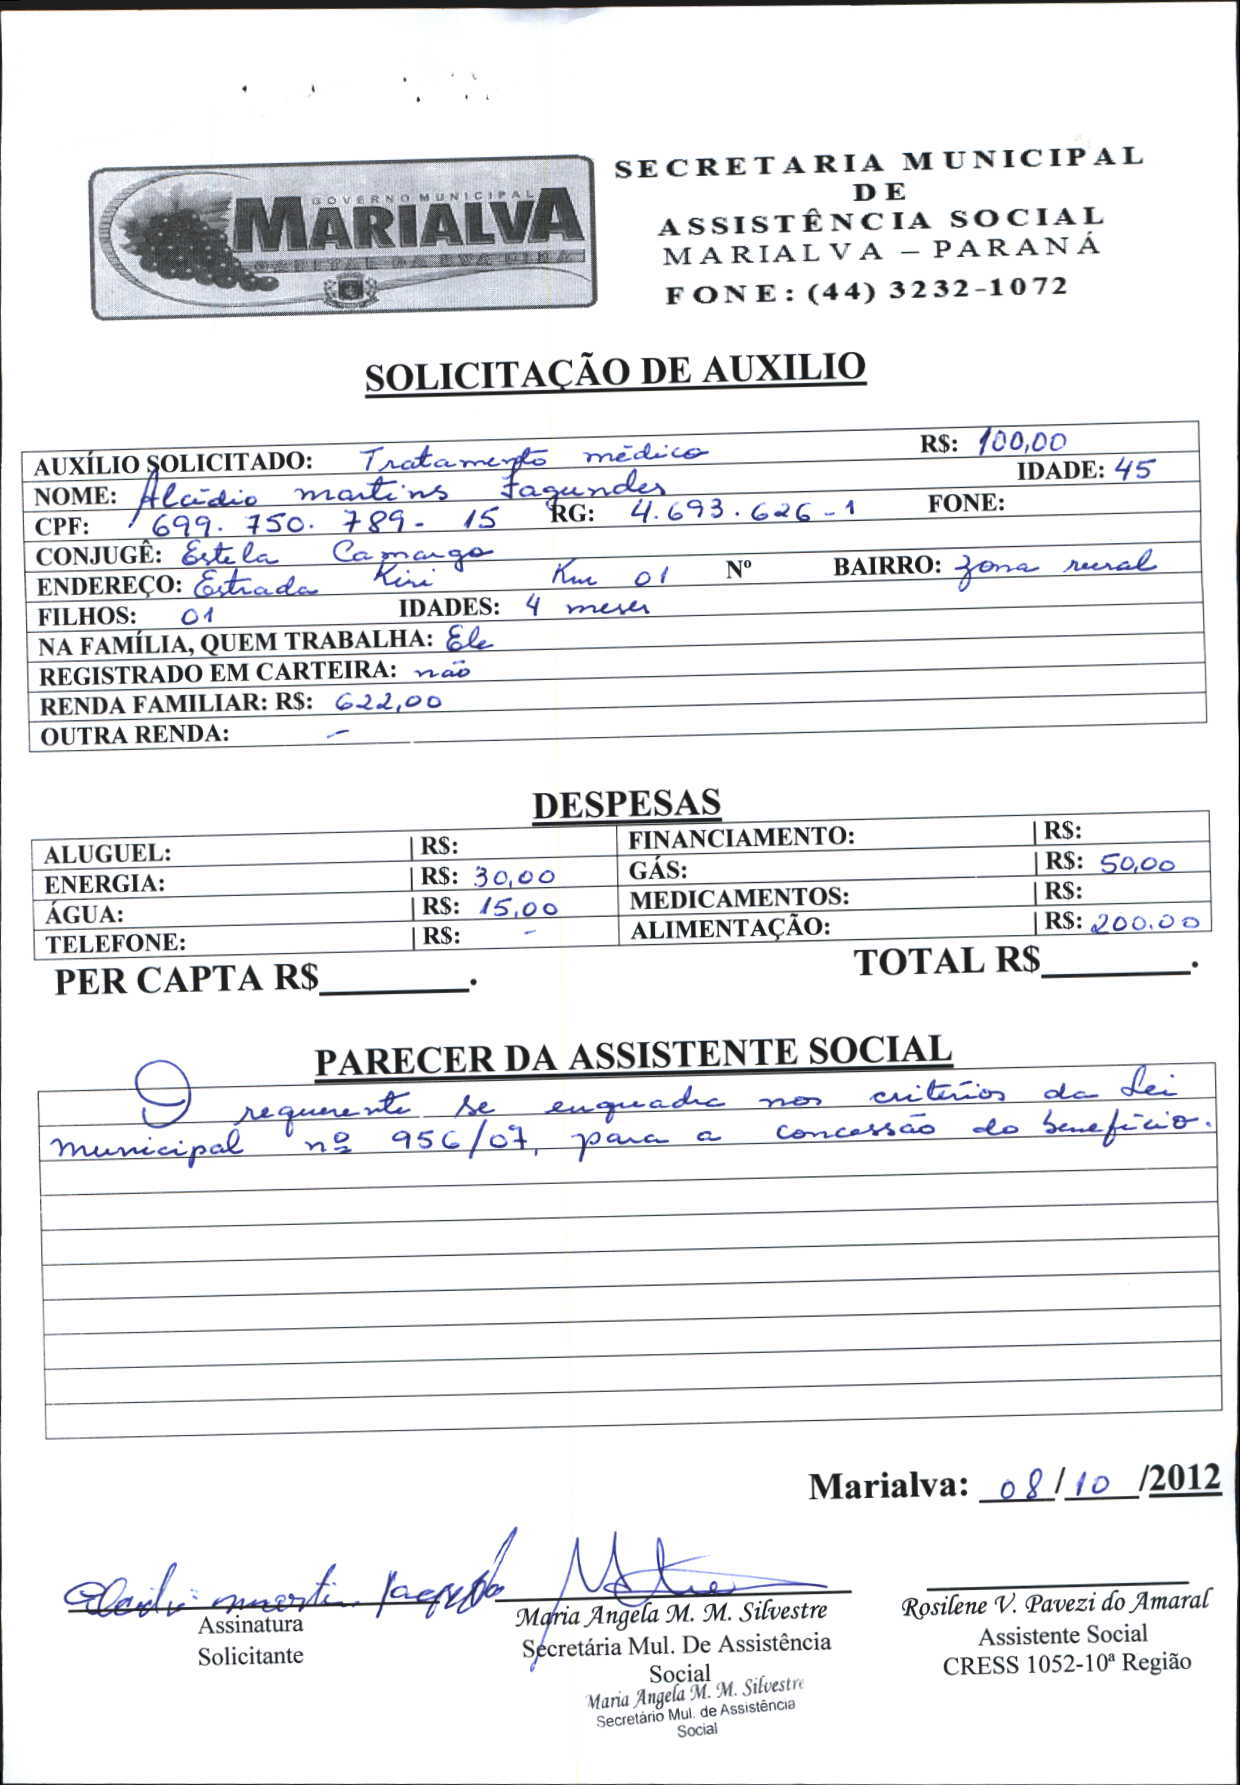 GOVERNO MUNICIPAL
MARIALVA
CAPITAL DA UVA FINA
SECRETARIA MUNICIPAL
DE
ASSISTÊNCIA SOCIAL
MARIALVA – PARANÁ
FONE: (44) 3232-1072
SOLICITAÇÃO DE AUXILIO
AUXÍLIO SOLICITADO: Tratamento médico R$: 100,00
NOME: Alcídio martins Fagundes IDADE: 45
CPF: 699.750.789-15 RG: 4.693.626-1 FONE:
CONJUGÊ: Estela Camargo
ENDEREÇO: Estrada Kiri Km 01 Nº BAIRRO: zona rural
FILHOS: 01 IDADES: 4 meses
NA FAMÍLIA, QUEM TRABALHA: Ele
REGISTRADO EM CARTEIRA: não
RENDA FAMILIAR: R$: 622,00
OUTRA RENDA: -
DESPESAS
ALUGUEL: R$: FINANCIAMENTO: R$:
ENERGIA: R$: 30,00 GÁS: R$: 50,00
ÁGUA: R$: 15,00 MEDICAMENTOS: R$:
TELEFONE: R$: - ALIMENTAÇÃO: R$: 200.00
PER CAPTA R$________. TOTAL R$________.
PARECER DA ASSISTENTE SOCIAL
O requerente se enquadra nos critérios da Lei
municipal nº 956/07, para a concessão do benefício.
Marialva: 08/10/2012
Alcídio martins Fagundes
Assinatura
Solicitante
Maria Angela M. M. Silvestre
Secretária Mul. De Assistência
Social
Maria Angela M. M. Silvestre
Secretário Mul. de Assistência
Social
Rosilene V. Pavezi do Amaral
Assistente Social
CRESS 1052-10ª Região